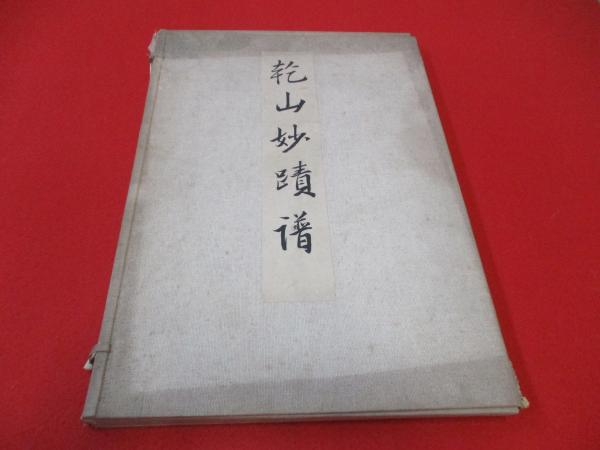 乾山妙蹟譜